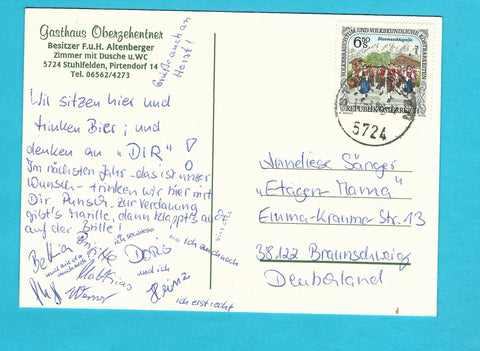 Gasthaus Oberzehentner
Besitzer F.u.H. Altenberger
Zimmer mit Dusche u.WC
5724 Stuhlfelden, Pirtendorf 14
Tel. 06562/4273
Grüße auch an
Horst!
Wir sitzen hier und
trinken Bier; und
denken an "DIR"!
Im nächsten Jahr - das ist unser
Wunsch - trinken wir hier mit
Dir Punsch. Zur Verdauung
gibt's Marille, dann klappt's auch
auf der Brille!
Bettina
ich sowieso
Matthias
DORIS
und ich
Werner
Heinz
ich erst recht
VOLKSBRAUCHTUM UND VOLKSKUNDLICHE KOSTBARKEITEN
Blasmusikkapelle
6.50 S
REPUBLIK ÖSTERREICH
5724
Anneliese Sänger
"Etagen-Mama"
Emma-Kraume-Str. 13
38122 Braunschweig
Deutschland